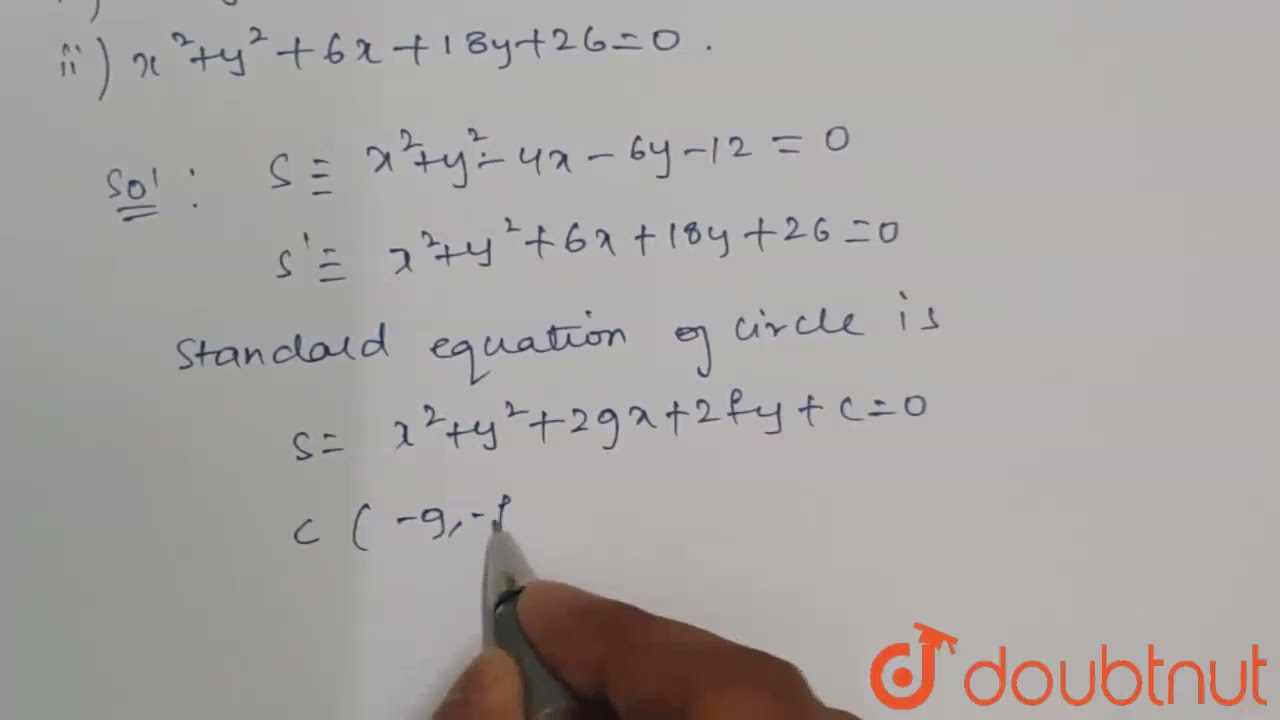 ii) x²+y²+6x+18y+26=0.
Sol: S ≡ x²+y²-4x-6y-12=0
S' ≡ x²+y²+6x+18y+26=0
Standard equation of circle is
S= x²+y²+2gx+2fy+c=0
C (-g,-f
doubtnut